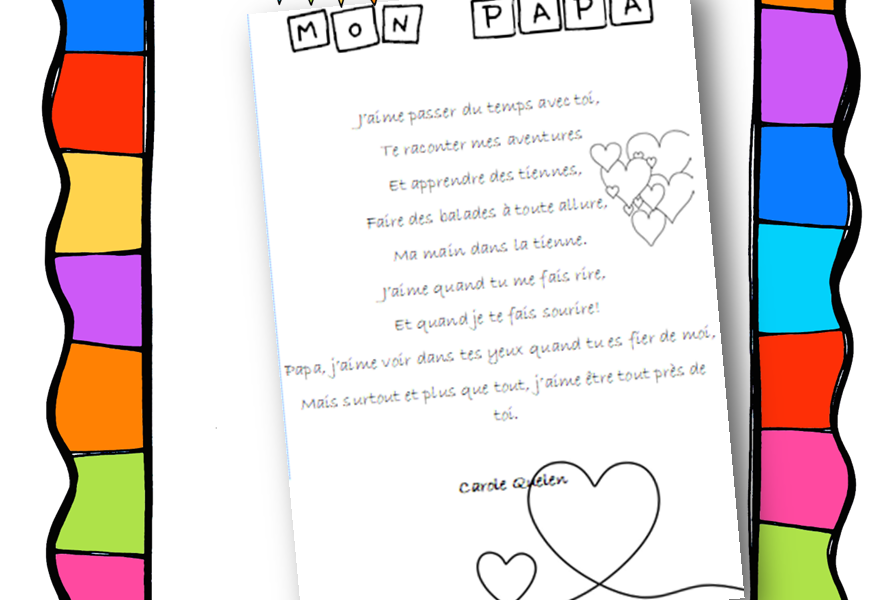 MON PAPA
J'aime passer du temps avec toi,
Te raconter mes aventures
Et apprendre des tiennes,
Faire des balades à toute allure,
Ma main dans la tienne.
J'aime quand tu me fais rire,
Et quand je te fais sourire!
Papa, j'aime voir dans tes yeux quand tu es fier de moi,
Mais surtout et plus que tout, j'aime être tout près de
toi.
Carole Quelen